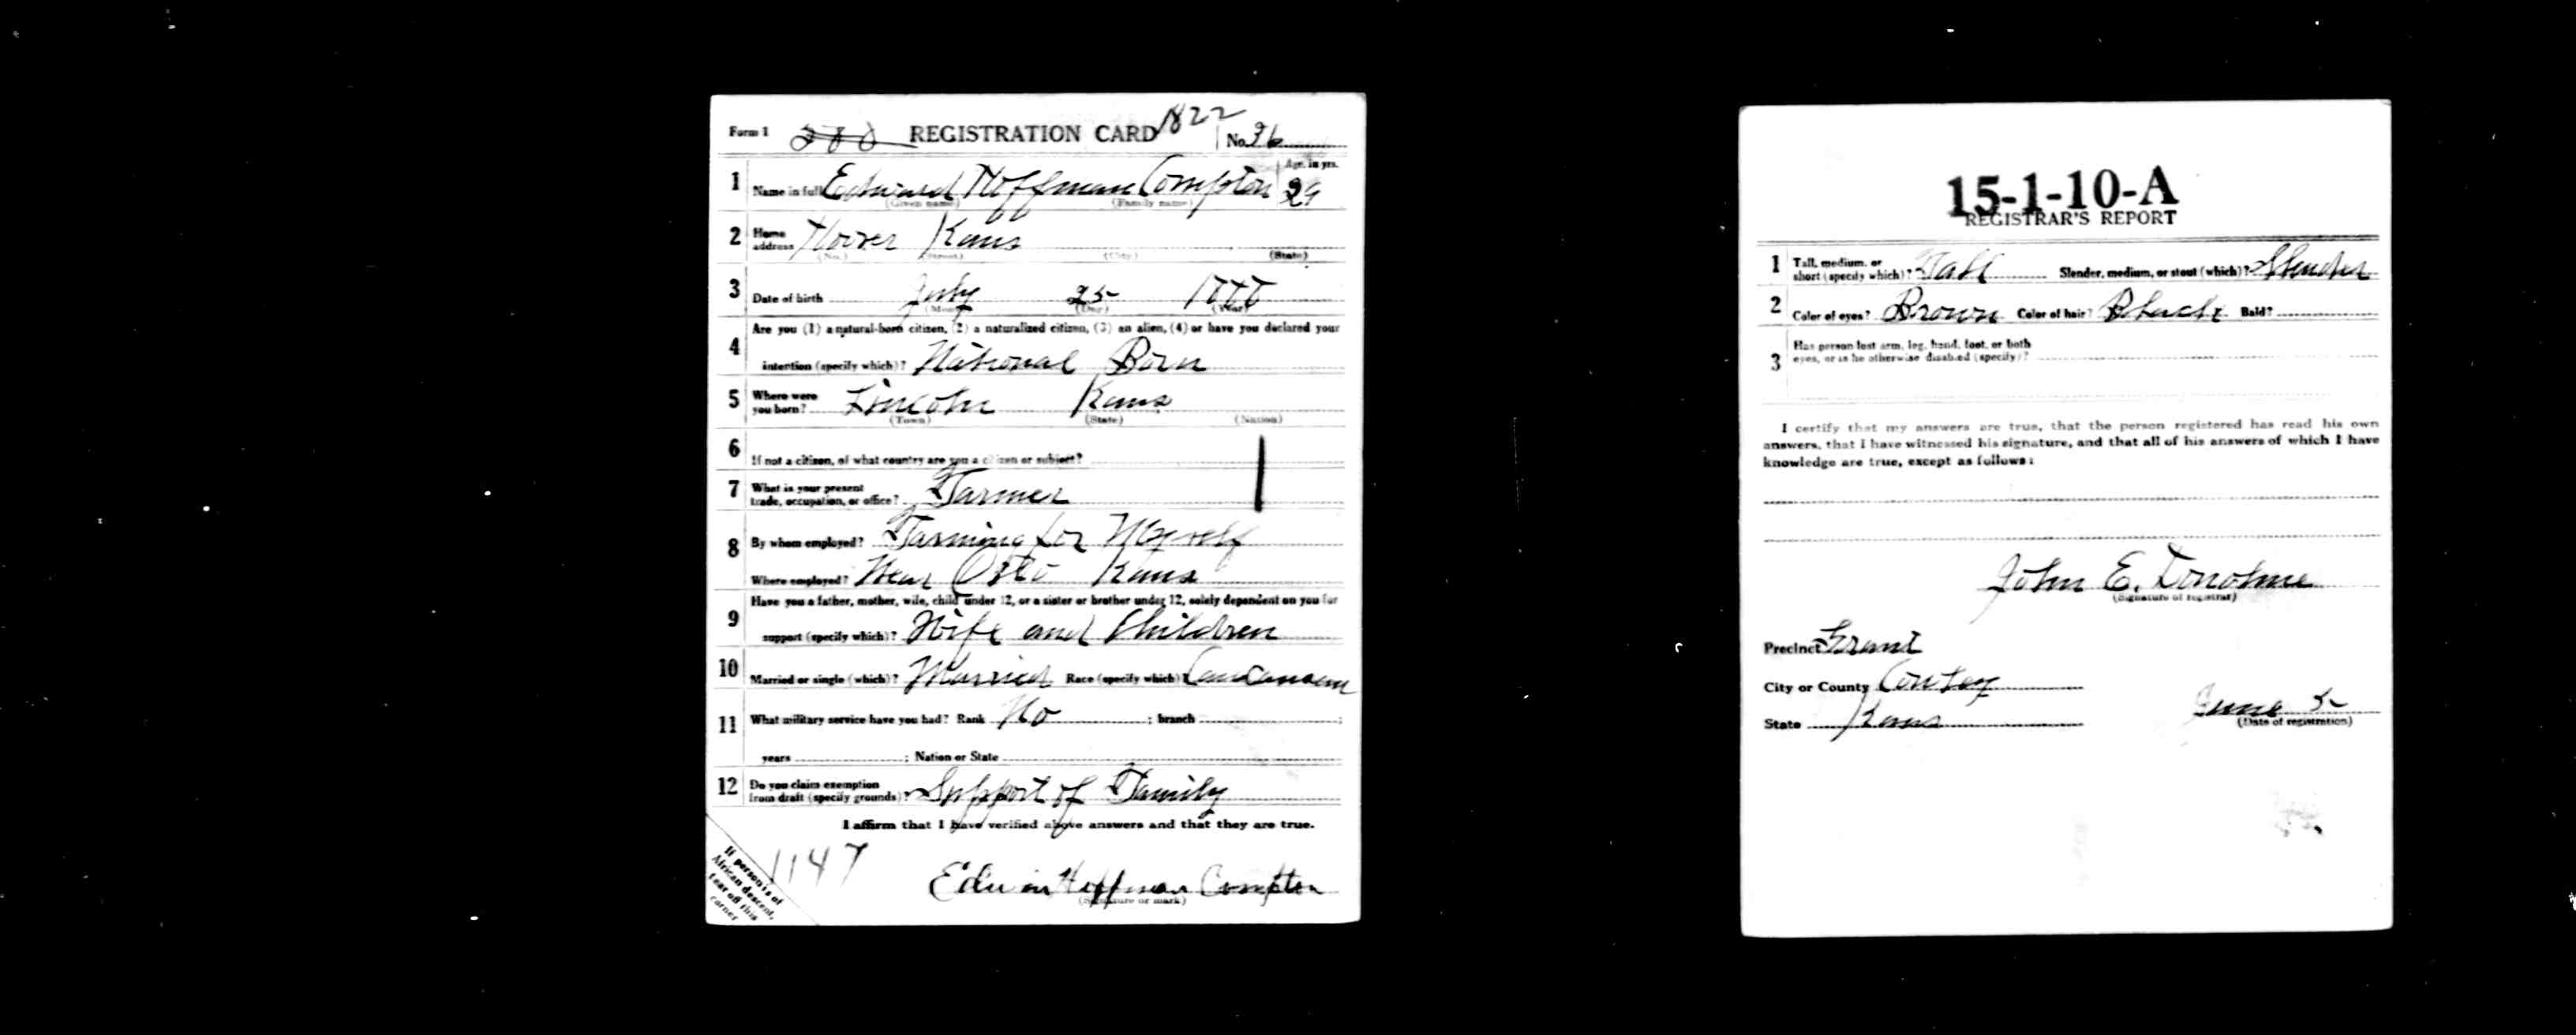 Form 1 380 REGISTRATION CARD 1822 No. 36
1 Name in full Edward Hoffman Compton Age, in yrs. 29
(Given name) (Family name)
2 Home address Hooser Kans
(No.) (Street) (City) (State)
3 Date of birth July 25 1888
(Month) (Day) (Year)
4 Are you (1) a natural-born citizen, (2) a naturalized citizen, (3) an alien, (4) or have you declared your
intention (specify which)? National Born
5 Where were you born? Lincoln Kans
(Town) (State) (Nation)
6 If not a citizen, of what country are you a citizen or subject?
7 What is your present trade, occupation, or office? Farmer
8 By whom employed? Farming for Myself
Where employed? Near Otto Kans
9 Have you a father, mother, wife, child under 12, or a sister or brother under 12, solely dependent on you for
support (specify which)? Wife and Children
10 Married or single (which)? Married Race (specify which)? Caucasian
11 What military service have you had? Rank No ; branch ;
years ; Nation or State
12 Do you claim exemption from draft (specify grounds)? Support of Family
I affirm that I have verified above answers and that they are true.
1147
Edwin Hoffman Compton
(Signature or mark)
If person is of
African descent,
tear off this
corner
15-1-10-A
REGISTRAR'S REPORT
1 Tall, medium, or short (specify which)? Tall Slender, medium, or stout (which)? Slender
2 Color of eyes? Brown Color of hair? Black Bald?
3 Has person lost arm, leg, hand, foot, or both
eyes, or is he otherwise disabled (specify)?
I certify that my answers are true, that the person registered has read his own
answers, that I have witnessed his signature, and that all of his answers of which I have
knowledge are true, except as follows:
John E. Donohue
(Signature of registrar)
Precinct Grant
City or County Cowley
State Kans June 5
(Date of registration)